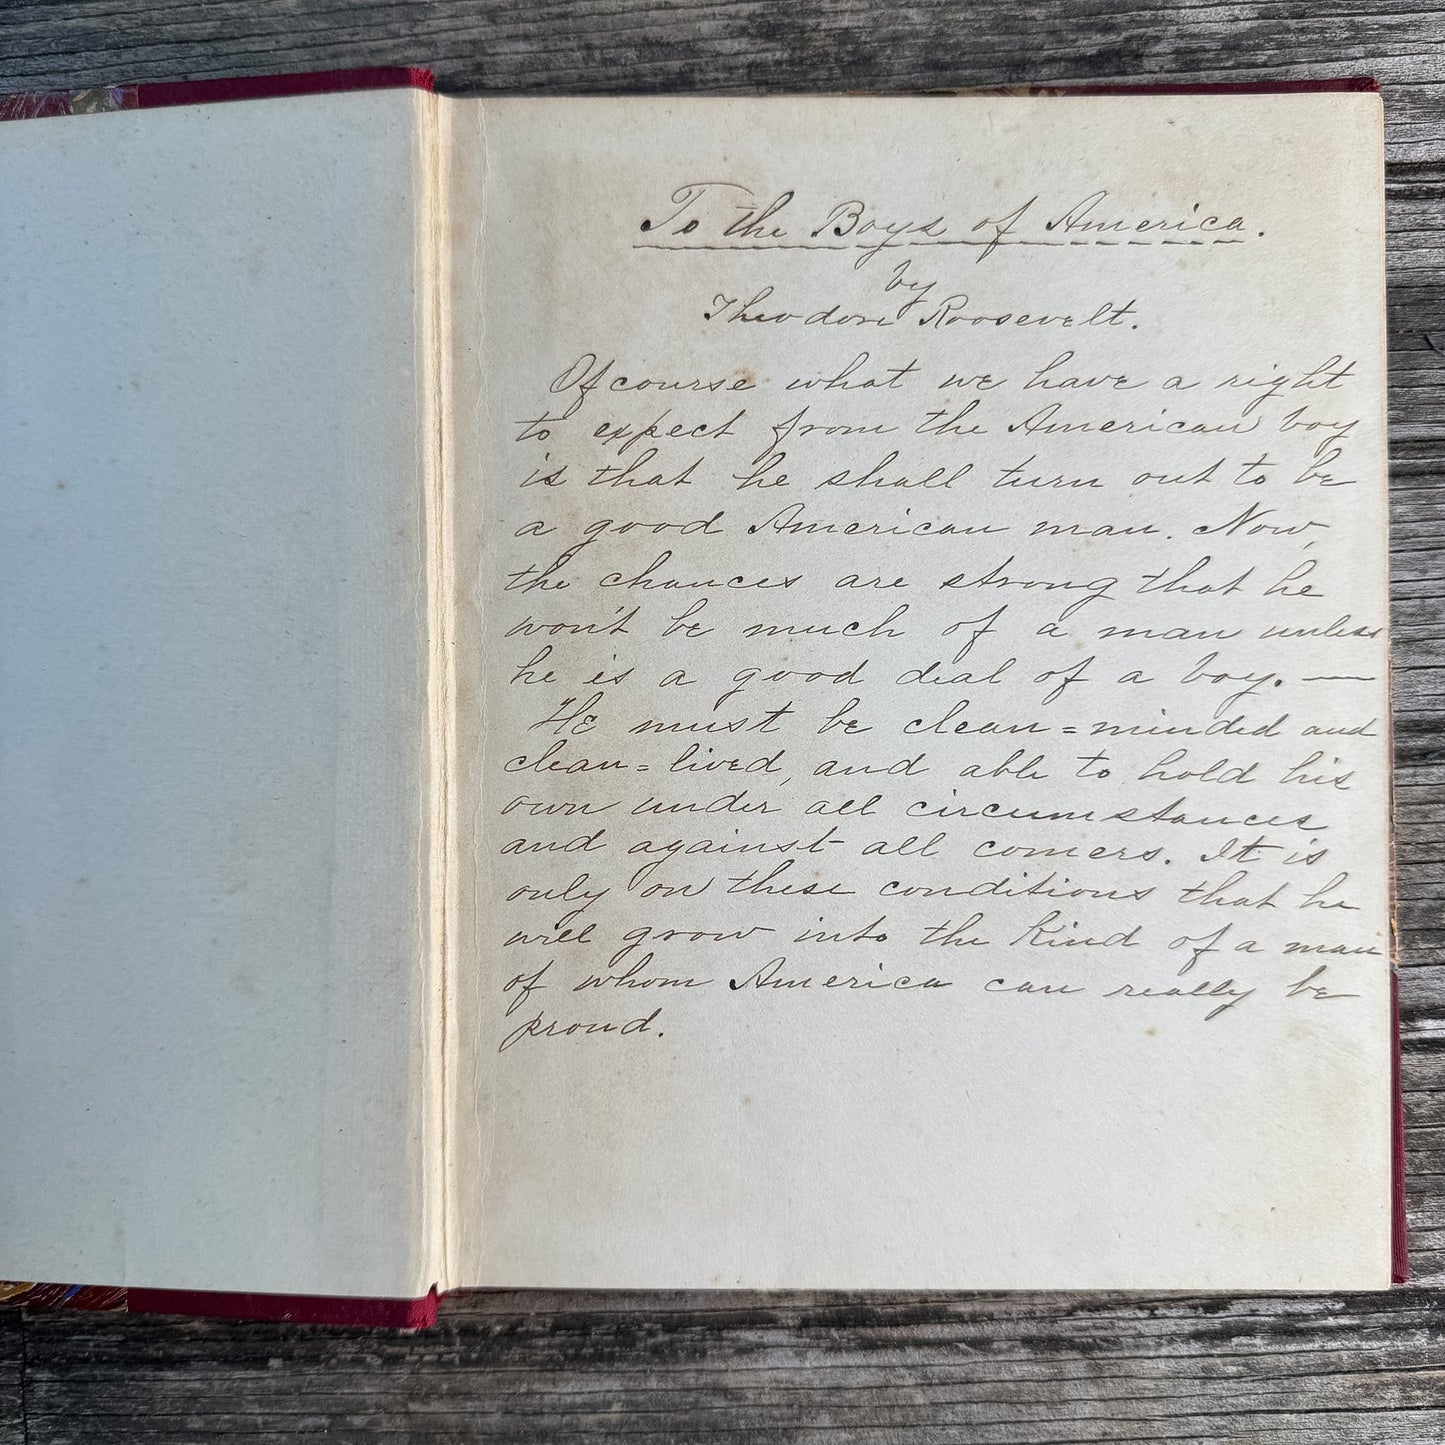 To the Boys of America.
by
Theodore Roosevelt.
Of course what we have a right
to expect from the American boy
is that he shall turn out to be
a good American man. Now,
the chances are strong that he
won't be much of a man unless
he is a good deal of a boy. —
He must be clean=minded and
clean=lived, and able to hold his
own under all circumstances
and against all comers. It is
only on these conditions that he
will grow into the kind of a man
of whom America can really be
proud.